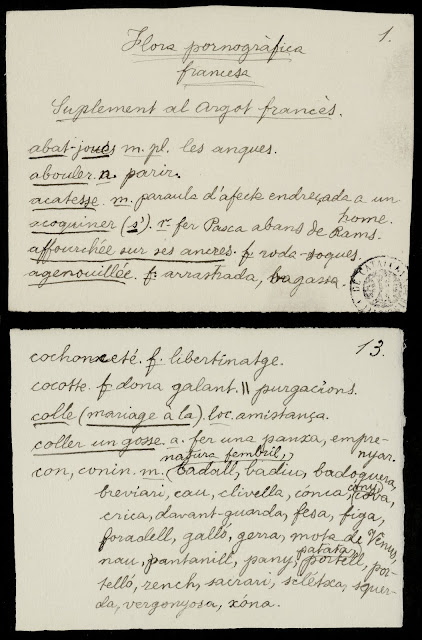 1.
Flora pornogràfica
francesa
Suplement al Argot francès.
abat-joues m. pl. les anques.
abouler. n. parir.
acatesse. m. paraula d'afeck endreçada a un
home.
acoquiner (s'). r. fer Pasca abans de Rams.
affourchée sur ses ancres. f. roda-soques.
agenouillée. f. arrastrada, bagassa.
13.
cochonceté. f. libertinatge.
cocotte. f. dona galant. || purgacions.
colle (mariage à la). loc. amistança.
coller un gosse. a. fer una panxa, empre-
nyar.
natura fembril,
con, conin. m. (badall, badiu, badoguera,
breviari, cau, clivella, conca, cony, cova,
crica, davant-guarda, fesa, figa,
foradell, galló, gerra, mota de Venus,
patata,
nau, pantanill, pany, portell, por-
telló, rench, sacrari, scletxa, squer-
da, vergonyosa, xóna.